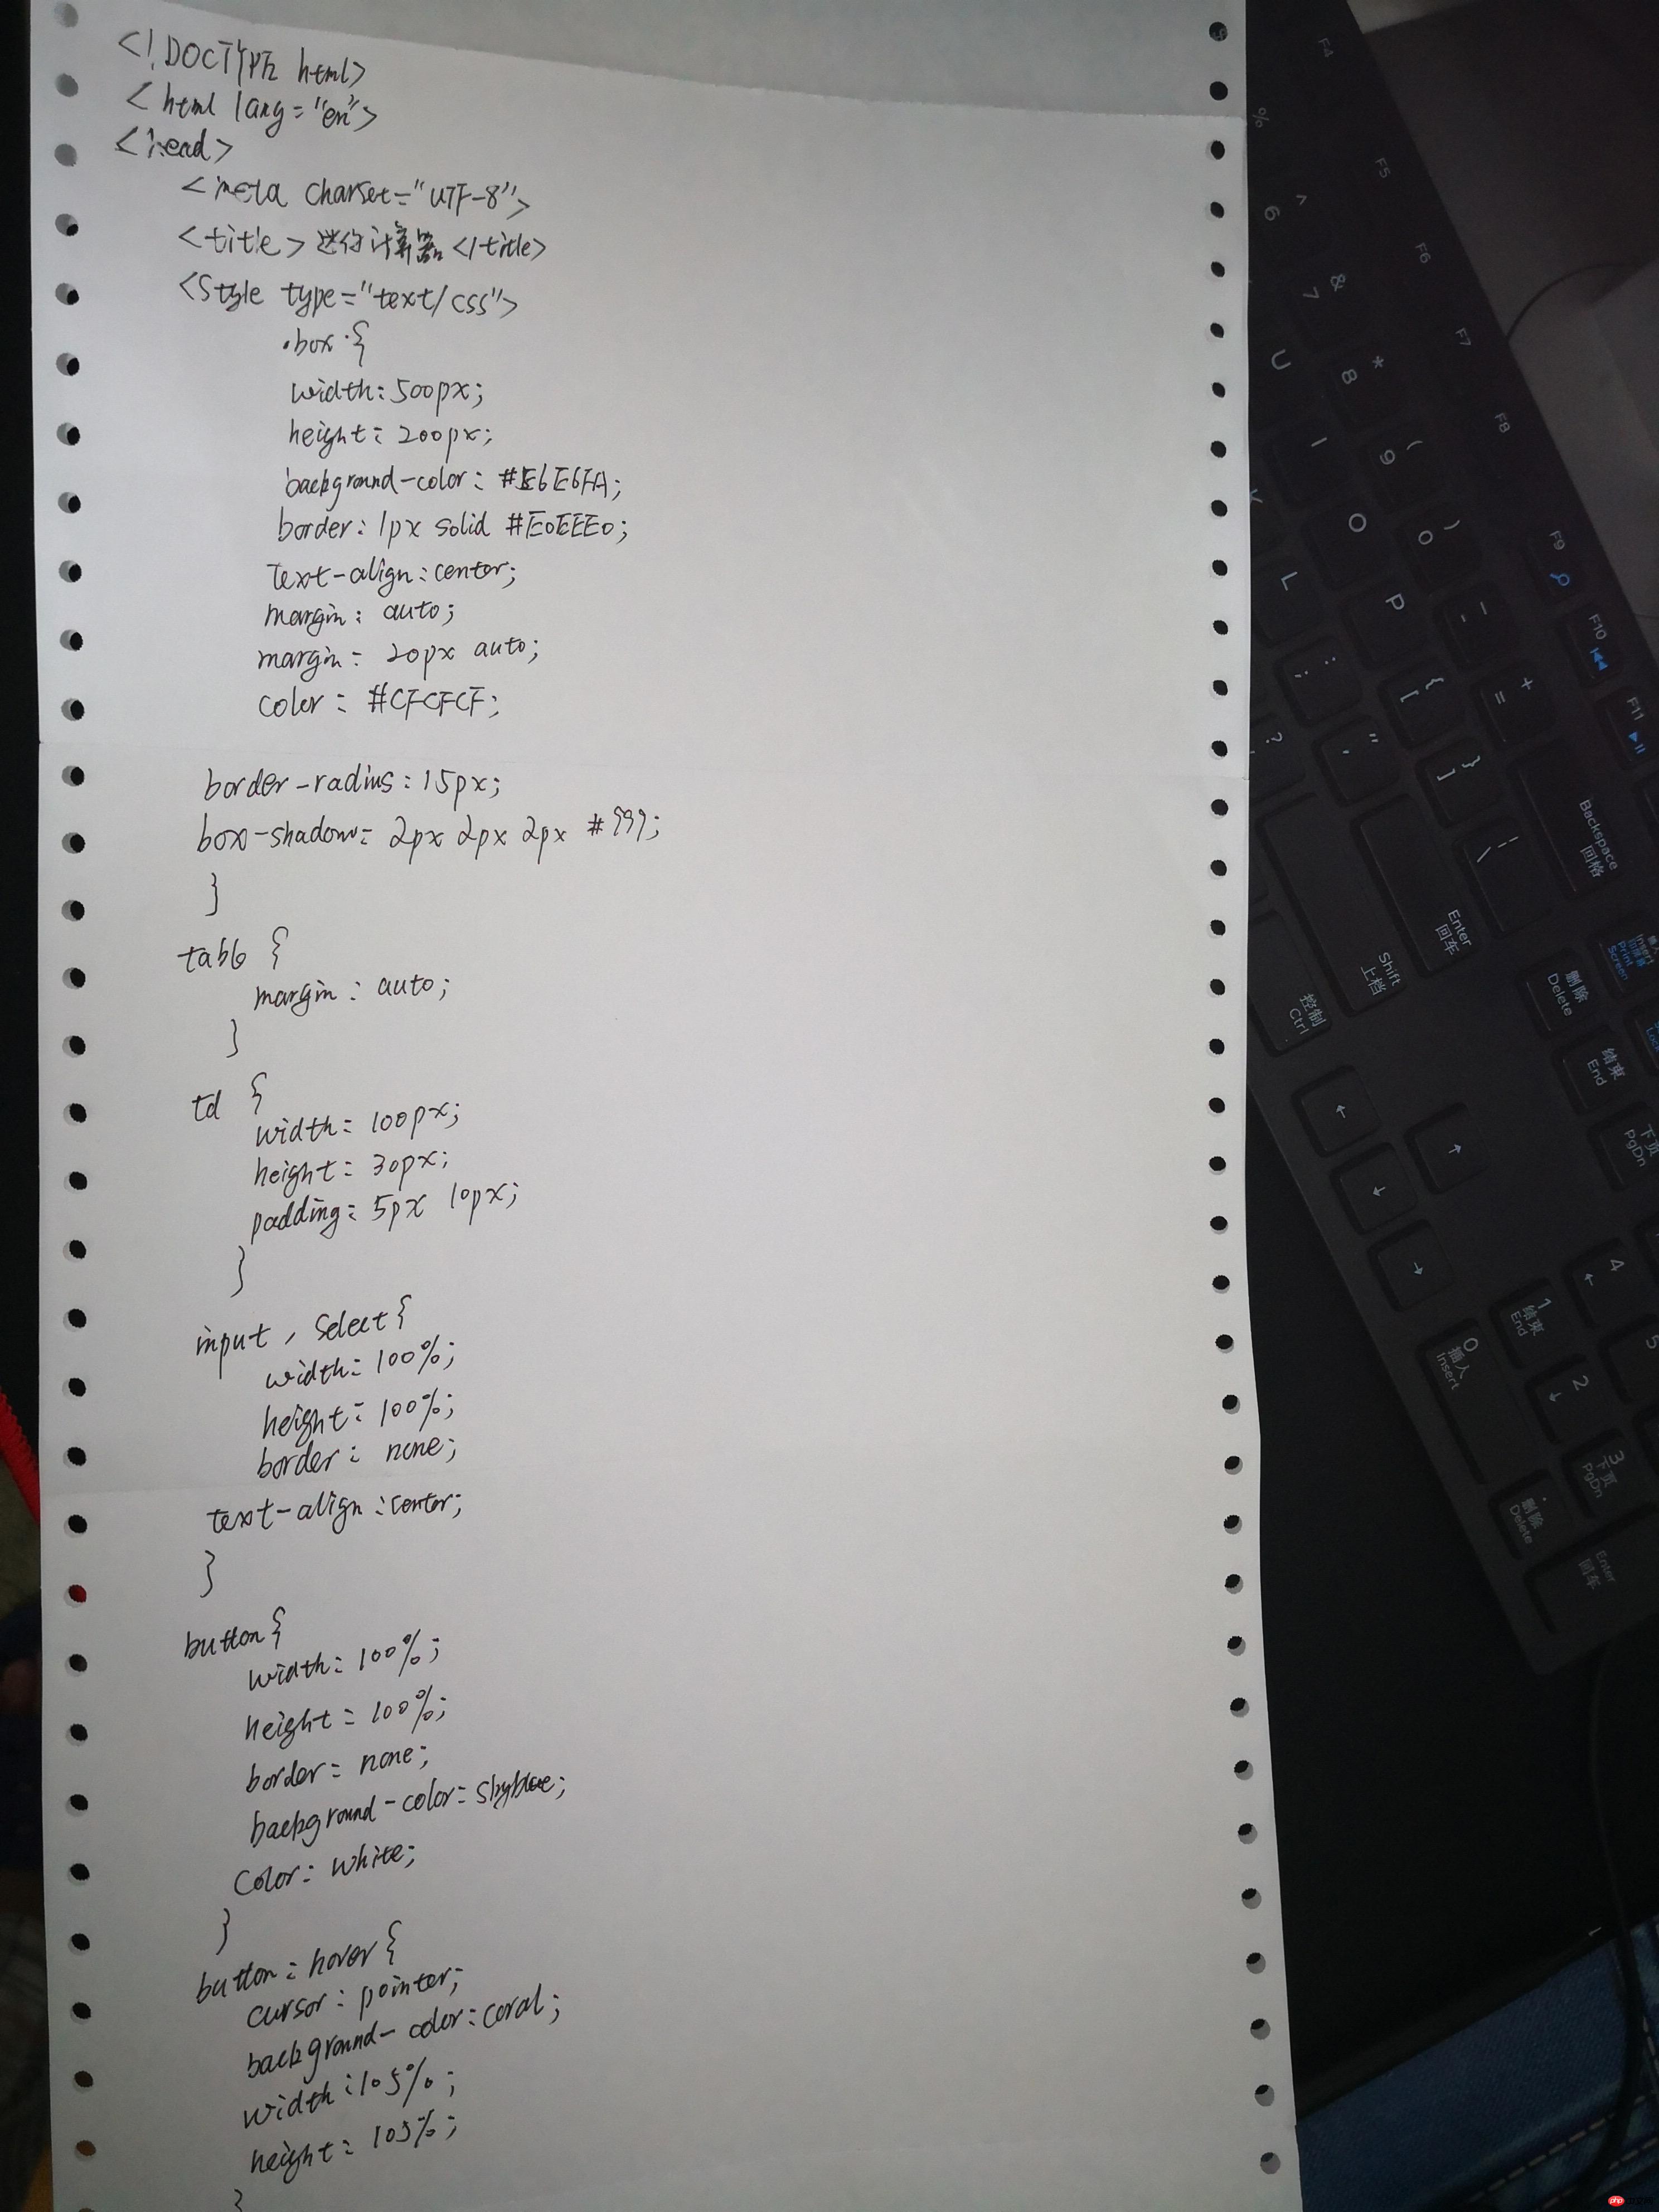 <!DOCTYPE html>
<html lang="en">
<head>
<meta charset="UTF-8">
<title>迷你计算器</title>
<style type="text/css">
.box {
width: 500px;
height: 200px;
background-color: #E6E6FA;
border: 1px solid #E0EEE0;
text-align: center;
margin: auto;
margin: 20px auto;
color: #CFCFCF;
border-radius: 15px;
box-shadow: 2px 2px 2px #999;
}
table {
margin: auto;
}
td {
width: 100px;
height: 30px;
padding: 5px 10px;
}
input, select{
width: 100%;
height: 100%;
border: none;
text-align: center;
}
button{
width: 100%;
height: 100%;
border: none;
background-color: skyblue;
color: white;
}
button:hover{
cursor: pointer;
background-color: coral;
width: 105%;
height: 105%;
}
F4
F5
F6
F7
F8
F9
F10
F11
%
^
6
&
7
*
8
(
9
)
0
-
+
=
U
I
O
P
{
[
}
]
L
:
;
"
'
?
\
Backspace
回格
Enter
回车
Shift
上档
控制
Ctrl
Insert
Print
Screen
删除
Delete
结束
End
下页
PgDn
←
↑
↓
→
4
←
5
1
结束
End
2
↓
3
下页
PgDn
0
插入
Insert
.
删除
Delete
Enter
回车
php